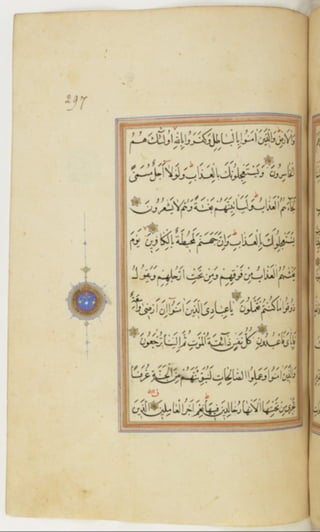 297
والارض والذين آمنوا بالباطل وكفروا بالله اولئك هم
الخاسرون ويستعجلونك بالعذاب ولولا اجل مسمى
لجاءهم العذاب وليأتينهم بغتة وهم لا يشعرون
يستعجلونك بالعذاب وان جهنم لمحيطة بالكافرين يوم
يغشيهم العذاب من فوقهم ومن تحت ارجلهم ويقول
ذوقوا ما كنتم تعملون يا عبادي الذين آمنوا ان ارضي واسعة
فاياي فاعبدون كل نفس ذائقة الموت ثم الينا ترجعون
والذين آمنوا وعملوا الصالحات لنبوئنهم من الجنة غرفا
تجري من تحتها الانهار خالدين فيها نعم اجر العاملين الذين